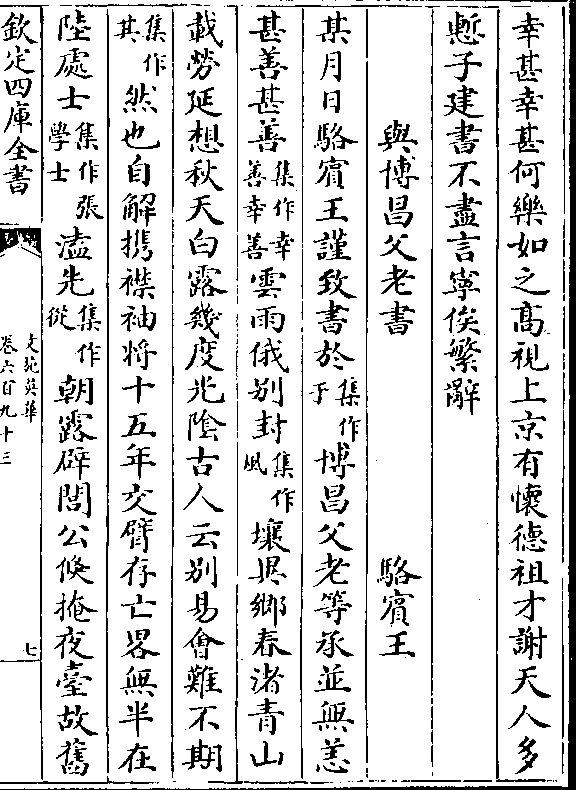 幸甚幸甚何樂如之高視上京有懷德祖才謝天人多
慙子建書不盡言寧俟繁辭
與博昌父老書　駱賓王
某月日駱賓王謹致書於集作于博昌父老等承並無恙
甚善甚善集作幸善幸善雲雨俄別封集作風壤異鄉春渚青山
載勞延想秋天白露幾度光陰古人云別易會難不期
集作其然也自解携襟袖将十五年交臂存亡畧無半在
陸處士集作張學士溘先集作從朝露辟閭公倐掩夜臺故舊
欽定四庫全書
文苑英華
卷六百九十三
七